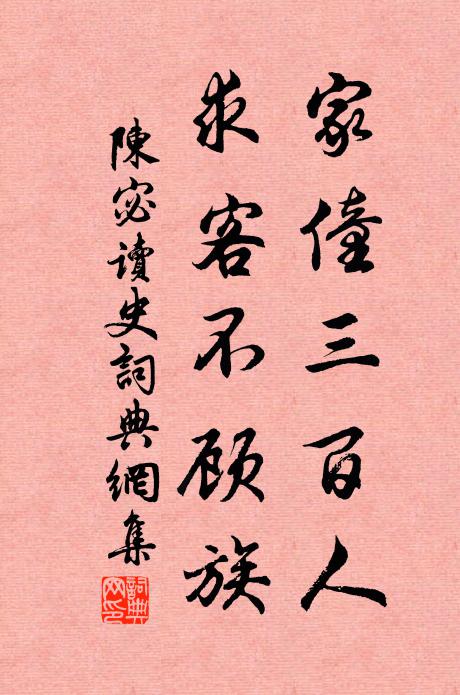 家僮三百人
求客不顾族
陳宓讀史詞典網集
詞典网印